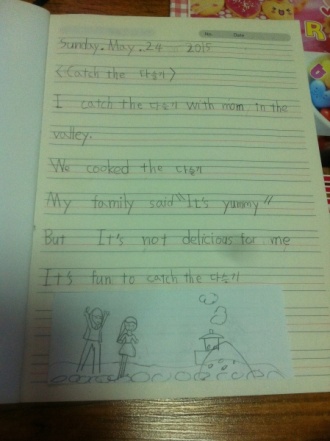 Sunday. May. 24 2015
No. Date
<Catch the 다슬기>
I catch the 다슬기 with mom, in the
valley.
We cooked the 다슬기
My family said "It's yummy"
But It's not delicious for me
It's fun to catch the 다슬기